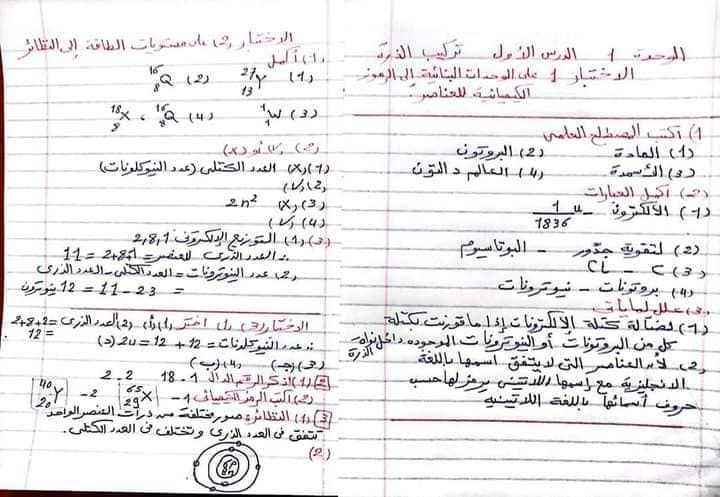 الوحدة 1 الدرس الأول تركيب الذرة
الاختبار 1 على الوحدات البنائية إلى الرموز
الكيميائية للعناصر
1) أكتب المصطلح العلمى
(1) المادة (2) البروتون
(3) الأسمدة (4) العالم دالتون
(2) أكمل العبارات
(1) الألكترون - 1/1836 u
(2) لتقوية جذور - البوتاسيوم
(3) C - CL
(4) بروتونات - نيوترونات
(3) علل لمايأتى
(1) لضآلة كتلة الألكترونات إذا ما قورنت بكتلة
كل من البروتونات أو النيوترونات الموجوده داخل نواة الذرة
(2) لأن العناصر التى لايتفق اسمها باللغة
الانجليزية مع إسمها اللاتينى يرمز لها حسب
حروف أسمائها باللغة اللاتينية
الاختبار (2) على مستويات الطاقة إلى النظائر
(1) أكمل
(1) ²⁷₁₃Y (2) ¹⁶₈Q
(3) ¹₁W (4) ¹⁶₈Q ، ¹⁸₈X
(2) √ أو (x)
(1) (x) العدد الكتلى (عدد النيوكلونات)
(2) (√)
(3) (x) 2n²
(4) (√)
(3) (1) التوزيع الإلكترونى 2,8,1
∴ العدد الذرى للعنصر = 1+8+2 = 11
(2) عدد النيوترونات = العدد الكتلى - العدد الذرى
= 23 - 11 = 12 نيوترون
الاختبار (3) (1) اختر (1) (أ) (2) العدد الذرى = 2+8+2
= 12
∴ عدد النيوكلونات = 12 + 12 = 24 (د)
(3) (جـ) (4) (ب)
2 (1) اذكر الرقم الدال 1- 18 2- 2
(2) اكتب الرمز الكيميائى 1- ⁶⁵₂₉X 2- ⁴⁰₂₀Y
3 (1) النظائر: صور مختلفة من ذرات العنصر الواحد
تتفق فى العدد الذرى وتختلف فى العدد الكتلى.
(2)
8P
8n